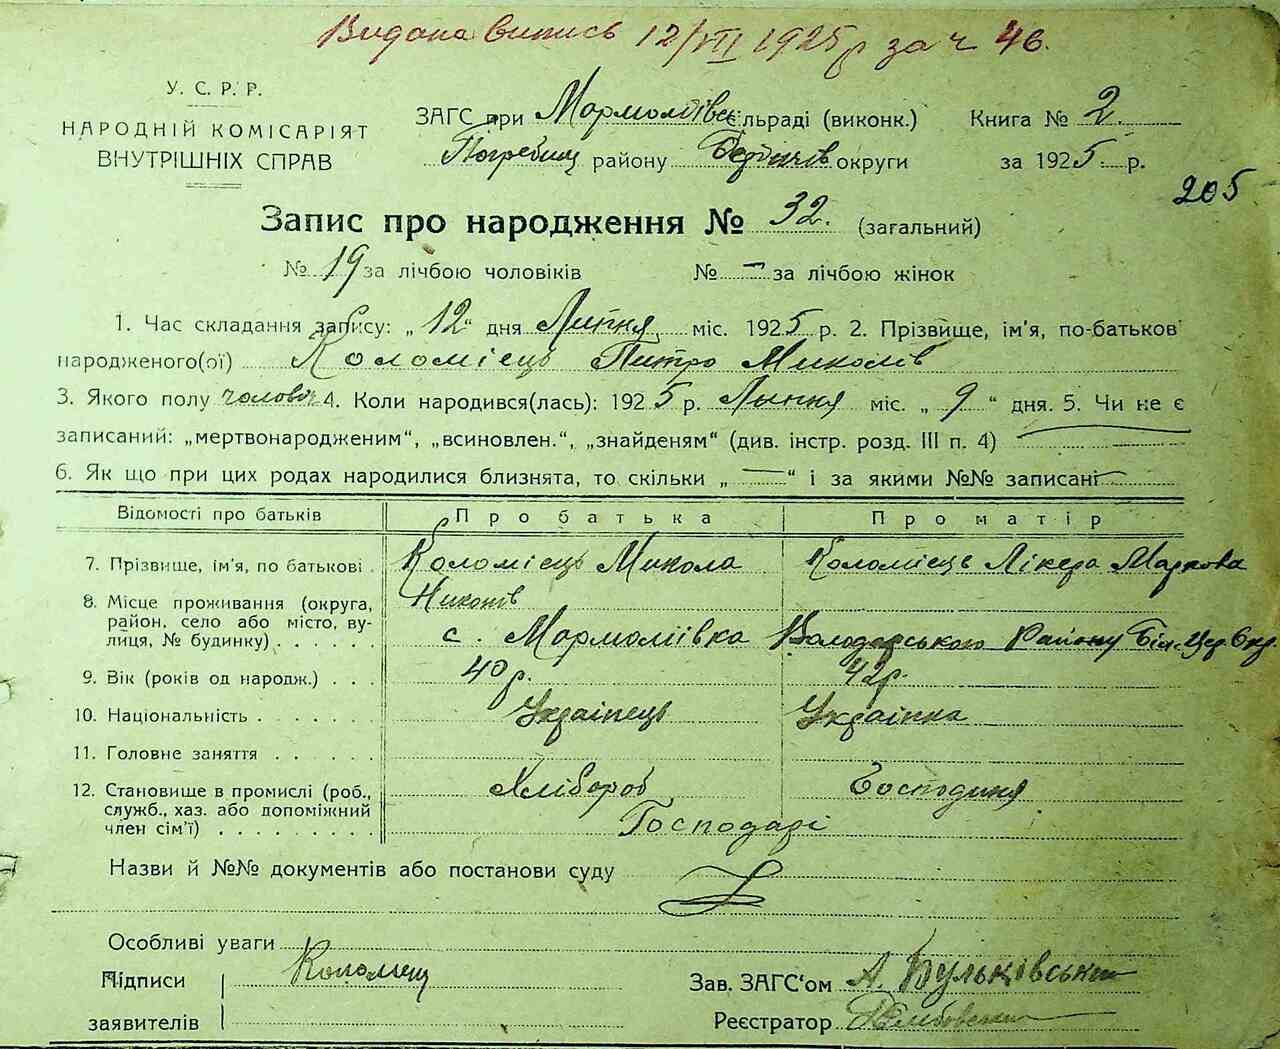 Видана випись 12/VII 1925 р за ч 46.
У. С. Р. Р.
НАРОДНІЙ КОМІСАРІЯТ
ВНУТРІШНІХ СПРАВ
ЗАГС при Мармоліївс. сільраді (виконк.) Книга № 2.
Погребищ району Бердичів округи за 1925 р.
205
Запис про народження № 32. (загальний)
№ 19 за лічбою чоловіків № — за лічбою жінок
1. Час складання запису: „12" дня Липня міс. 1925 р. 2. Прізвище, ім'я, по-батьков
народженого(ої) Коломієць Питро Миколів
3. Якого полу чоловіч 4. Коли народився(лась): 1925 р. Липня міс. „9" дня. 5. Чи не є
записаний: „мертвонародженим", „всиновлен.", „знайденям" (див. інстр. розд. III п. 4) —
6. Як що при цих родах народилися близнята, то скільки „—" і за якими №№ записані —
Відомості про батьків Про батька Про матір
7. Прізвище, ім'я, по батькові Коломієць Микола Коломієць Лікера Маркова
8. Місце проживання (округа, Никонів
район, село або місто, ву-
лиця, № будинку) с. Мармоліївка Володарського Району Біл. Цер. Окр.
9. Вік (років од народж.) 40 р. 42 р.
10. Національність Українець Українка
11. Головне заняття
12. Становище в промислі (роб., Хлібороб Господиня
служб., хаз. або допоміжний
член сім'ї) Господарі
Назви й №№ документів або постанови суду
Особливі уваги
Підписи Коломієц Зав. ЗАГС'ом А. Бульківський
заявителів Реєстратор